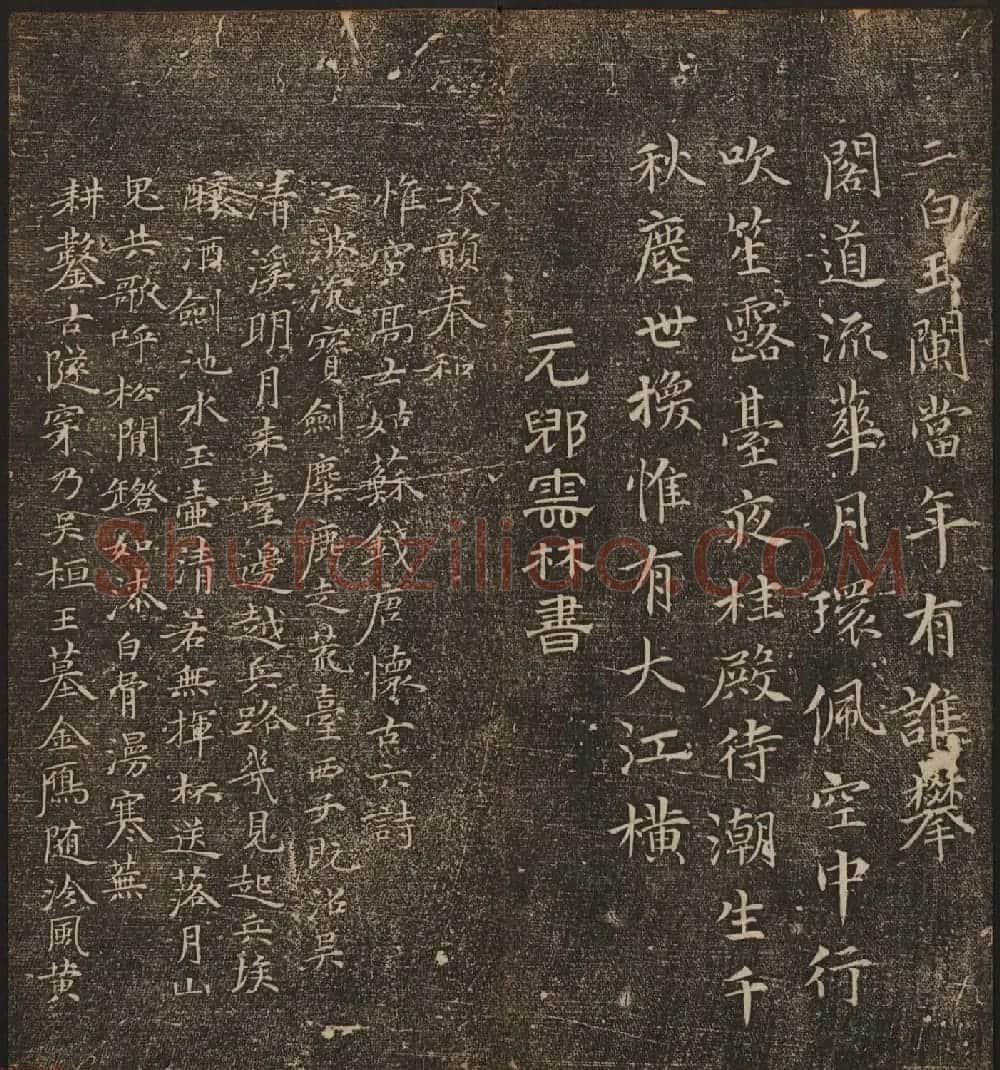 二白玉闌當年有誰攀
閣道流華月環佩空中行
吹笙露臺夜桂殿待潮生千
秋塵世換惟有大江橫
元卿雲林書
次韻奉和
惟寅高士姑蘇錢唐懷古六詩
江波沉寶劍麋鹿走荒臺西子既沼吳
清溪明月來臺邊越兵路幾見起兵埃
釀酒劍池水玉壺清若無揮杯送落月山
鬼共歌呼松間燈如漆白骨漫寒蕪
耕鑿古隧穿乃吳桓王墓金鴈随泠風黄
Shufaziliao.COM